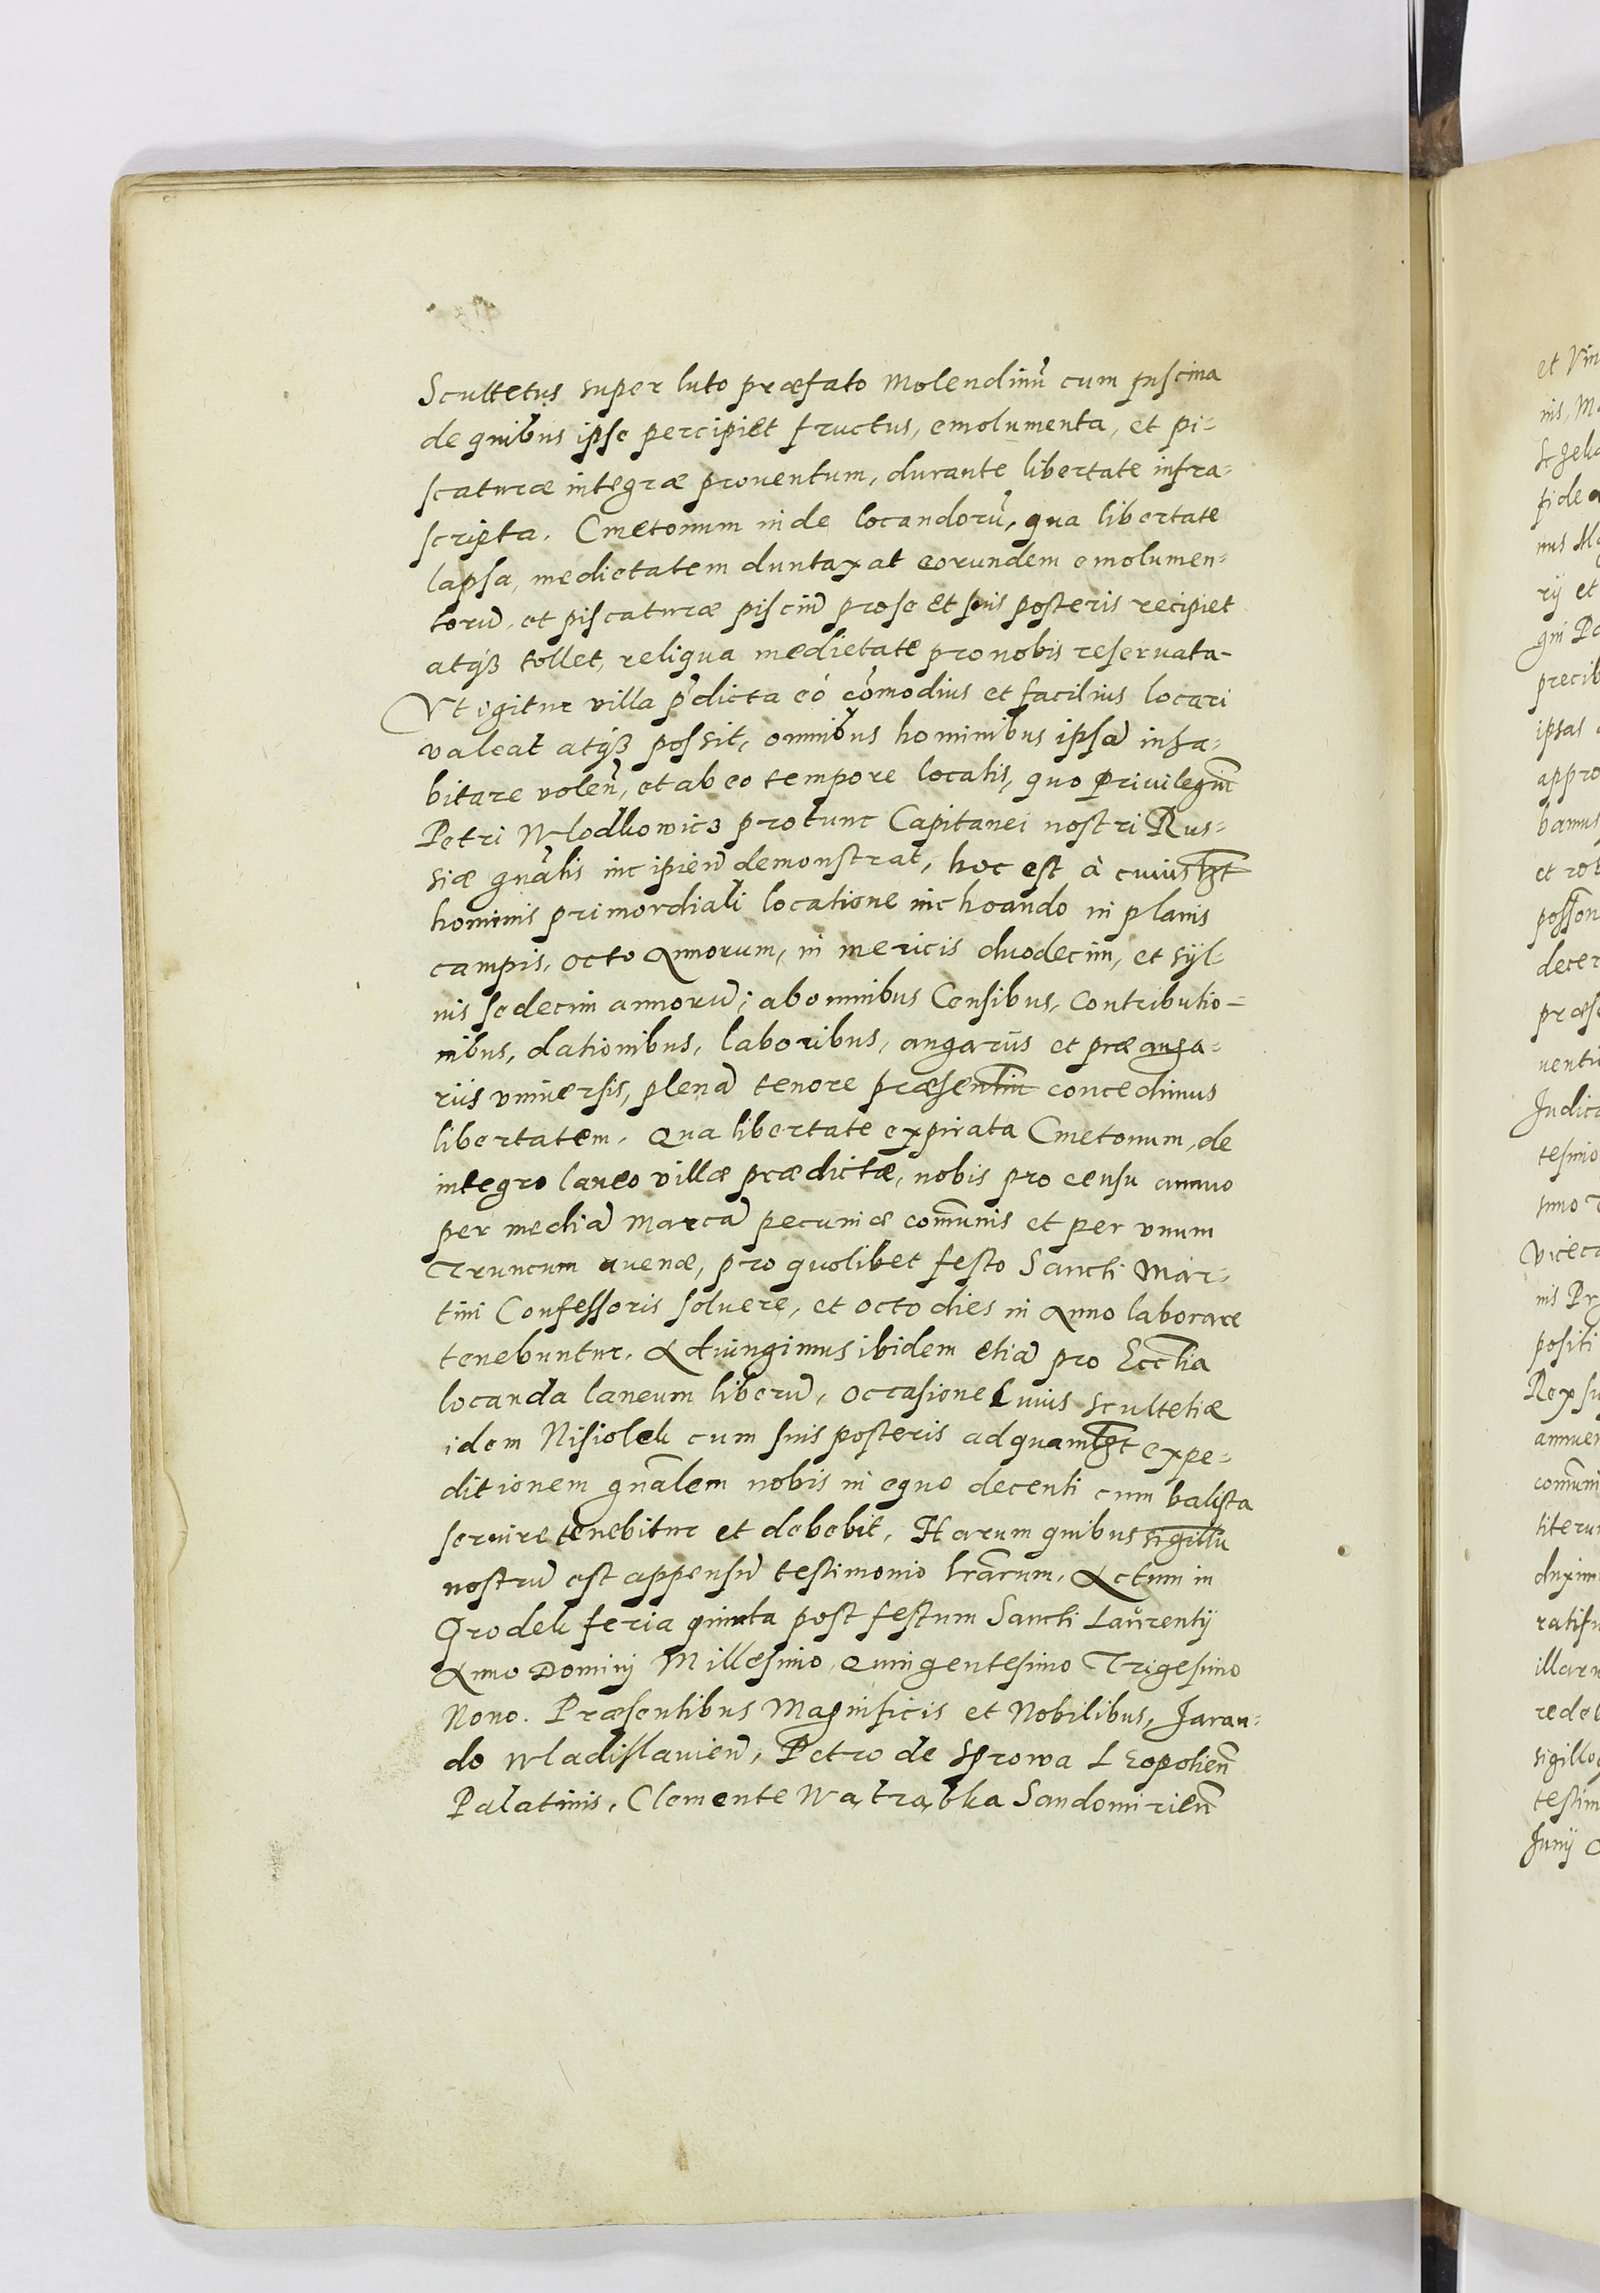 Scultetus super luto præfato Molendinū cum piscina
de quibus ipse percipiet fructus, emolumenta, et pi-
scaturæ integræ prouentum, durante libertate infra-
scripta. Cmetonum inde locandorū, qua libertate
lapsa, medietatem duntaxat eorundem emolumen-
torū, et piscaturæ pisciū pro se et suis posteris recipiet
atqȝ tollet, reliqua medietate pro nobis reseruata-
Vt igitur villa p̄dicta eó cōmodius et facilius locari
valeat atqȝ possit, omnibus hominibus ipsā inha-
bitare volen̄, et ab eo tempore locatis, quo Priuilegiū
Petri Wlodkowicz protunc Capitanei nostri Rus-
siæ gn̄alis incipien̄ demonstrat, hoc est à cuiuslȝt
hominis primordiali locatione inchoando in planis
campis, octo Annorum, in mericis duodecim, et syl-
uis sedecim annorū; ab omnibus Censibus, Contributio-
nibus, dationibus, laboribus, angariis et præanga-
riis vniuersis, plenā tenore præsentiū concedimus
libertatem. Qua libertate expirata Cmetonum, de
integro laneo villæ prædictæ, nobis pro censu annuo
per mediā Marcā pecuniæ com̄unis et per vnum
Truncum auenæ, pro quolibet festo Sancti Mar-
tini Confessoris soluere, et octo dies in Anno laborare
tenebuntur. Adiungimus ibidem etiā pro Eccl̄ia
locanda laneum liberū, occasione cuius Scultetiæ
idem Nisiolek cum suis posteris ad quamlȝt expe-
ditionem gn̄alem nobis in equo decenti cum balista
seruire tenebitur et debebit, Harum quibus sigillū
nostrū est appensū testimonio lr̄arum, Actum in
Grodek feria quinta post festum Sancti Laurentij
Anno Dominj Millesimo, Quingentesimo Trigesimo
Nono. Præsentibus Magnificis et Nobilibus, Jaran-
do Wladislauien̄, Petro de Sprowa Leopolien̄
Palatinis, Clemente Watrabka Sandomirien̄